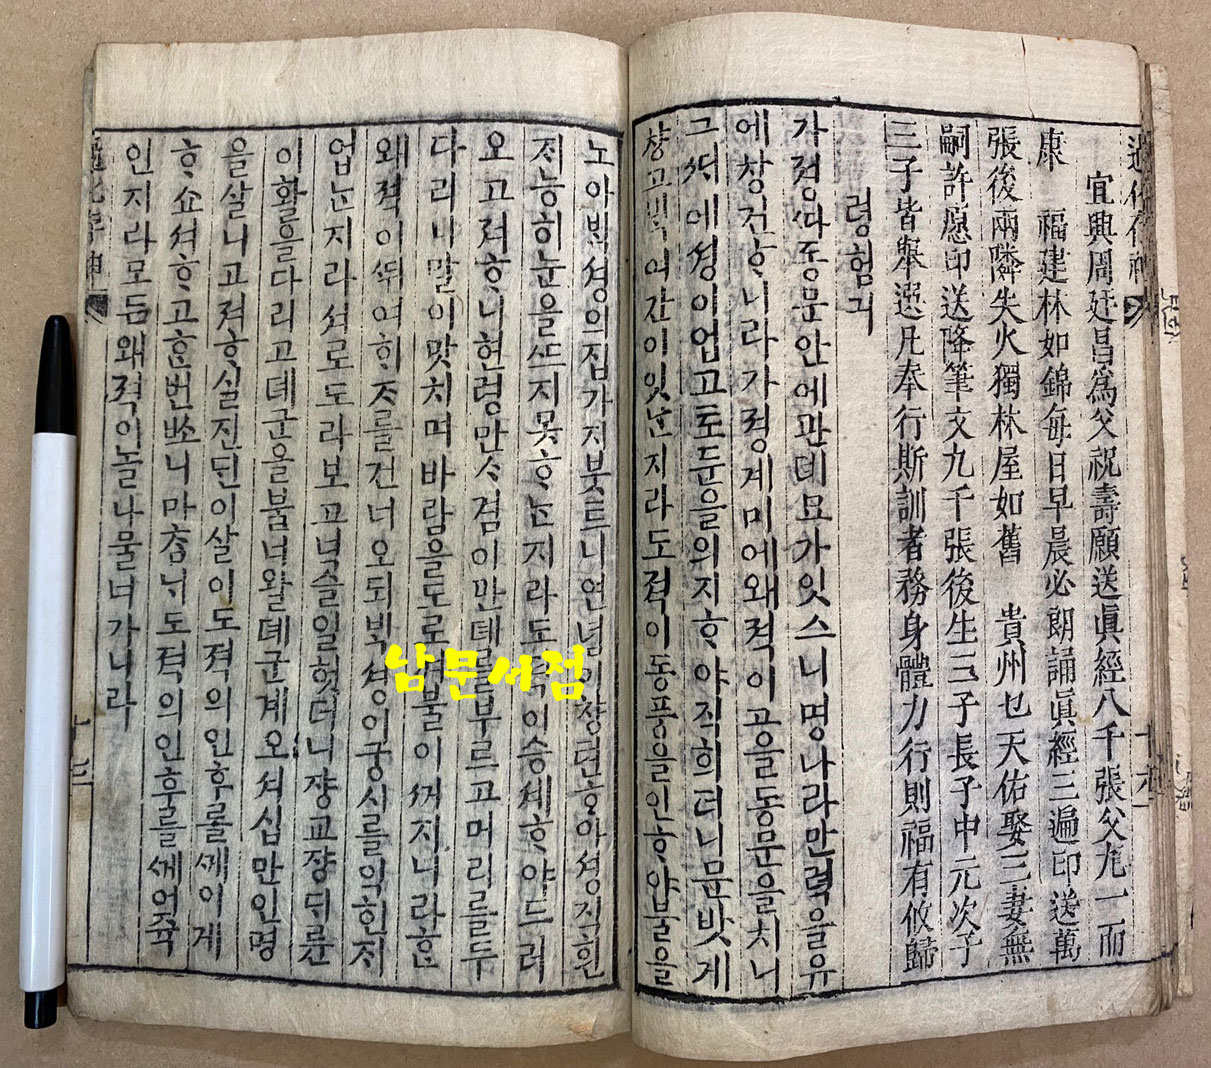 過化存神
宜興周廷昌為父祝壽願送眞經八千張父九一而
康　福建林如錦每日早晨必朗誦眞經三遍印送萬
張後兩隣失火獨林屋如舊　貴州乜天佑娶三妻無
嗣許愿印送降筆文九千張後生三子長子中元次子
三子皆舉選凡奉行斯訓者務身體力行則福有攸歸
령험긔
가졍ᄯᅡ동문안에관뎨묘가잇스니명나라만력을유
에창건ᄒᆞ니라가졍계미에왜적이공을동문을치니
그ᄯᅢ에셩이업고토둔을의지ᄒᆞ야직희더니문밧게
창고ᄇᆡᆨ여간이잇ᄂᆞᆫ지라도적이동풍을인ᄒᆞ야불을
노아ᄇᆡᆨ셩의집가지붓트니연념이창텬ᄒᆞ야셩직흰
ᄌᆡ능히눈을ᄯᅳ지못ᄒᆞᄂᆞᆫ지라도적이승셰ᄒᆞ야드러
오고져ᄒᆞ니현령만ᄉᆞ겸이만뎨를부르고머리를두
다리니말이맛치며바람을도로혀불이ᄭᅥ지니라ᄒᆞᆫ
왜적이ᄯᅱ여ᄒᆡᄌᆞ를건너오되ᄇᆡᆨ셩이궁시를익힌ᄌᆡ
업ᄂᆞᆫ지라셔로도라보고넉슬일헛더니쟝교쟝ᄃᆡ륜
이활을다리고뎨군을불너왈뎨군계오셔십만인명
을살니고져ᄒᆞ실진ᄃᆡᆫ이살이도적의인후를ᄭᅦ이게
ᄒᆞ쇼셔ᄒᆞ고ᄒᆞᆫ번ᄡᅩ니마ᄎᆞᆷᄂᆡ도적의인후를ᄭᅦ어쥭
인지라모든왜적이놀나물너가니라
過化存神
남문서점